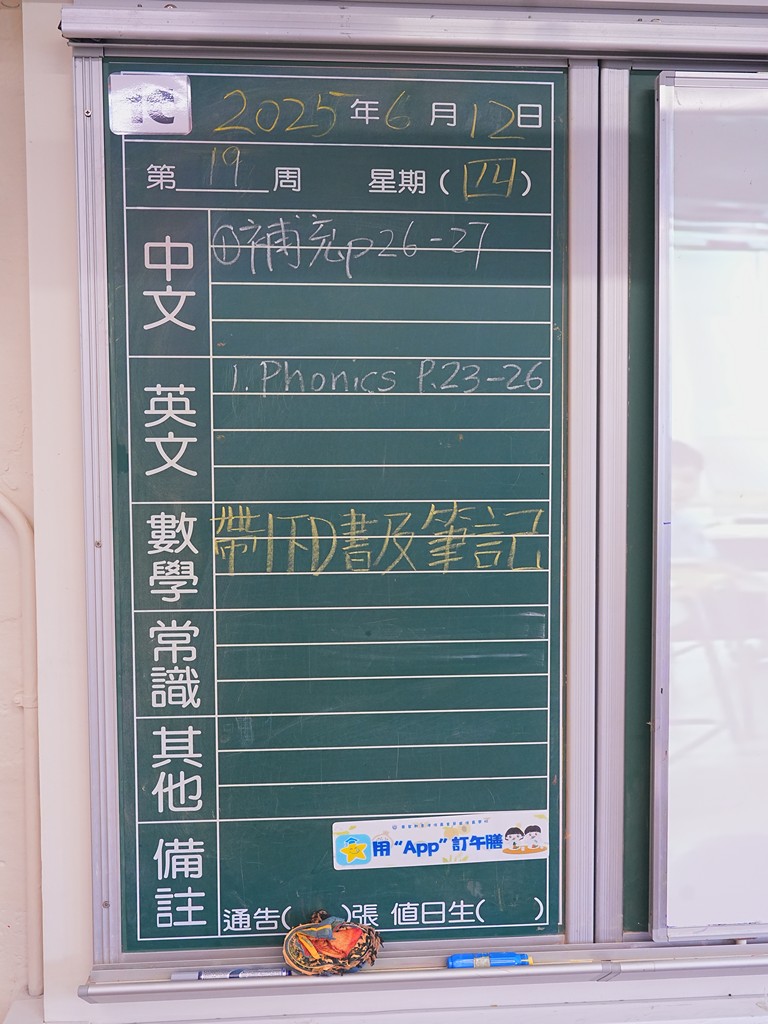 1C
2025年6月12日
第19周 星期(四)
中文
①補充p26-27
英文
1. Phonics P.23-26
數學
帶1下D書及筆記
常識
其他
備註
用“App”訂午膳
通告( )張 值日生( )